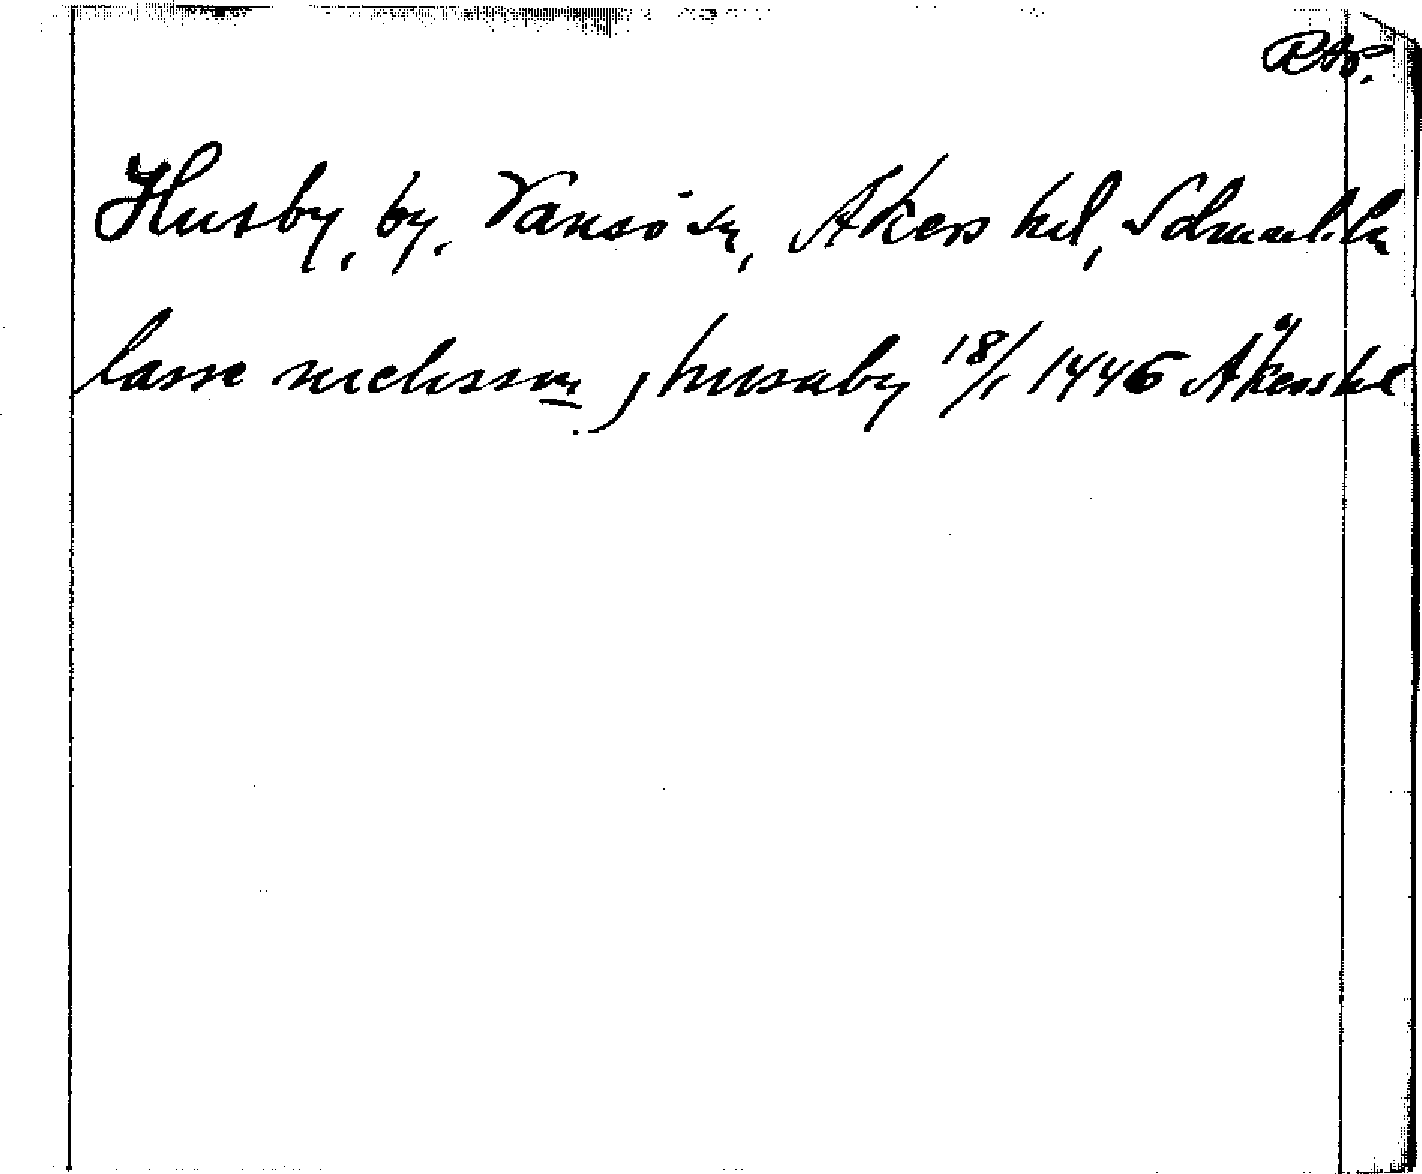 RAp.
Husby, by, Vansö sn, Åkers hd, Södmanl. län
lasse niclisson j husaby 18/1 1446 Åkers hd